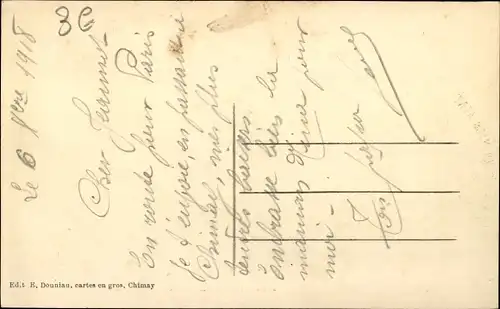 Le 6 1918
Cher
En route pour Paris
je t'envoie, en passant à
Chimay, mes plus
tendres baisers
Embrasse bien la
maman pour
moi -
Ton
Ed.t H. Dounlau, cartes en gros, Chimay